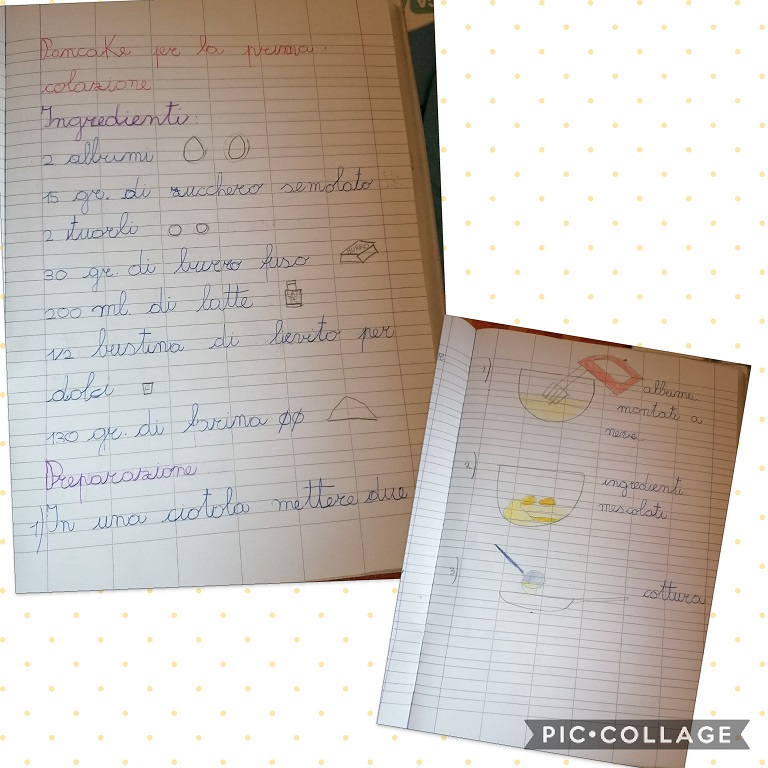 Pancake per la prima
colazione
Ingredienti:
2 albumi
15 gr. di zucchero semolato
2 tuorli
30 gr. di burro fuso
BURRO
200 ml. di latte
1/2 bustina di lievito per
dolci
130 gr. di farina 00
Preparazione
1) In una ciotola mettere due
1)
albumi
montati a
neve.
2)
ingredienti
mescolati
3)
cottura
PIC•COLLAGE